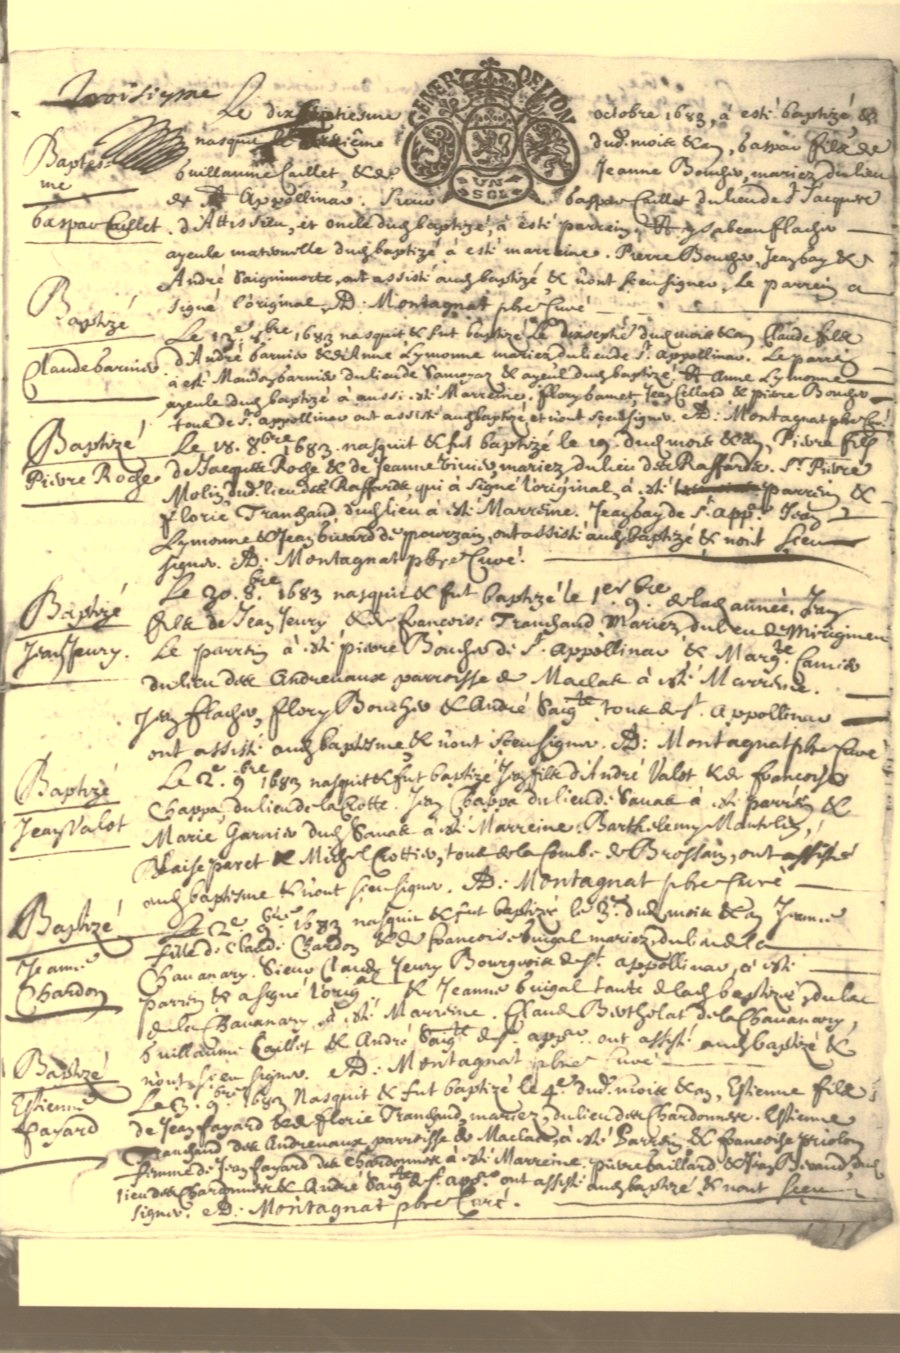 Troisiesme
Le dix septiesme octobre 1683, à esté baptizé, &
GENER. DE LYON
UN SOL
nasquit le dud. mois & an, Gaspar filz de
Baptes
me
Guillaume Caillet, & de Jeanne Boucher, mariez, du lieu
de St Appollinar. Sieur Gaspar Caillet du lieu de St Jacques
Gaspar Caillet. d'Attissieu, et oncle dud baptizé, à esté parrein, & Ysabeau flacher
ayeule maternelle dud baptizé à esté marreine. Pierre Boucher, Jean bay &
André Saiguimorte, ont assisté aud baptizé & n'ont sceu signer, Le parrein a
signé l'original, AD: Montagnat pbre Curé
Baptizé
Le 17e 8bre 1683 nasquit & fut baptizé le dixsepte dud mois & an Claude filz
Claude barnier d'André barnier & d'Anne Lymonne mariez, du lieu de St. Appollinar. Le parrein
à esté barnier du lieu de & ayeul dud baptizé & Anne Lymonne
ayeule dud baptizé à aussi esté Marreine. flory bamet, Jean Cellard & pierre Boucher
tous de St. appollinar ont assisté aud baptizé et n'ont sceu signer. AD: Montagnat pbr Curé
Baptizé Le 18. 8bre 1683. nasquit & fut baptizé le 19. dud mois & an, Pierre filz
Pierre Roche de Jacques Roche & de Jeanne mariez, du lieu des Raffardz. Sr. Pierre
Molin dud. lieu des Raffardz, qui à signé l'original, à esté parrein &
florie Tranchand dud lieu à esté Marreine. Jean bay de St. app. Jean
Lymonne & Jean bivard de ont assisté aud baptizé & n'ont sceu
signer. AD: Montagnat pbre Curé.
Le 30. 8bre 1683 nasquit & fut baptizé le 1er 9bre de lad année. Jean
Baptizé filz de Jean Jeury & de françoise Tranchand Mariez, du lieu de
Jean Jeury. Le parrein à esté pierre Boucher de St. Appollinar & Margte Camier
du lieu des Andrevaux parroisse de Maclas à esté Marreine.
Jean flacher, flory Boucher & André Saigte tous de St. Appollinar
ont assisté aud baptesme, & n'ont sceu signer. AD: Montagnat pbre Curé
Baptizé Le 2e. 9bre 1683 nasquit & fut baptizé Jean filz d'André Valot & de françoise
Jean Valot Chappa, du lieu de la Jean Chappa du lieu de Sauat à esté parrein &
Marie Garnier dud Sauat à esté Marreine. Barthelemy
Blaise peret & Michel Cottier, tous de la Combe de Brossain, ont assisté
aud baptesme & n'ont sceu signer. AD: Montagnat pbre Curé
Baptizé Le 2e. 9bre 1683 nasquit & fut baptizé le 3e. dud mois & an Jeanne
Jeanne fille de Claude Chardon & de françoise mariez, du lieu de la
Chardon Chavanary. Sieur Claude Jeury Bourgeois de St. appollinar, à esté
parrein & a signé l'origal & Jeanne tante de lad baptizée, du lieu
de la Chavanary, à esté Marreine. Claude Berthelat de la Chavanary,
Guillaume Caillet & André Saigte de St. appar ont assisté aud baptizé &
n'ont sceu signer. AD: Montagnat pbre Curé
Baptizé Le 3. 9bre 1683 Nasquit & fut baptizé le 4e. dud. mois & an, Estienne filz
Estienne de Jean fayard & de florie Tranchand, mariez, du lieu des Chardonnetz. Estienne
fayard Tranchand des Andrevaux parroisse de Maclas, à esté Parrein & françoise
femme de Jean fayard des Chardonnetz à esté Marreine. pierre Gaillard & Jean Bivaud dud
lieu des Chardonnetz & André Saigte de St. appr. ont assisté aud baptizé & n'ont sceu
signer. AD: Montagnat pbre Curé.